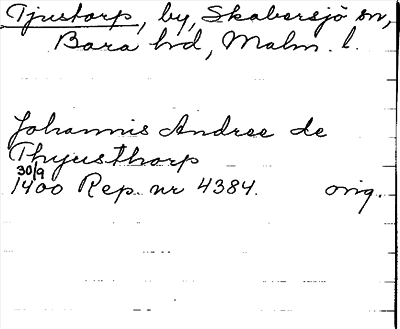 Tjustorp, by, Skabersjö sn,
Bara hd, Malm. l.
Johannis Andree de
Thyusthorp
30/9
1400 Rep. nr 4384. orig.